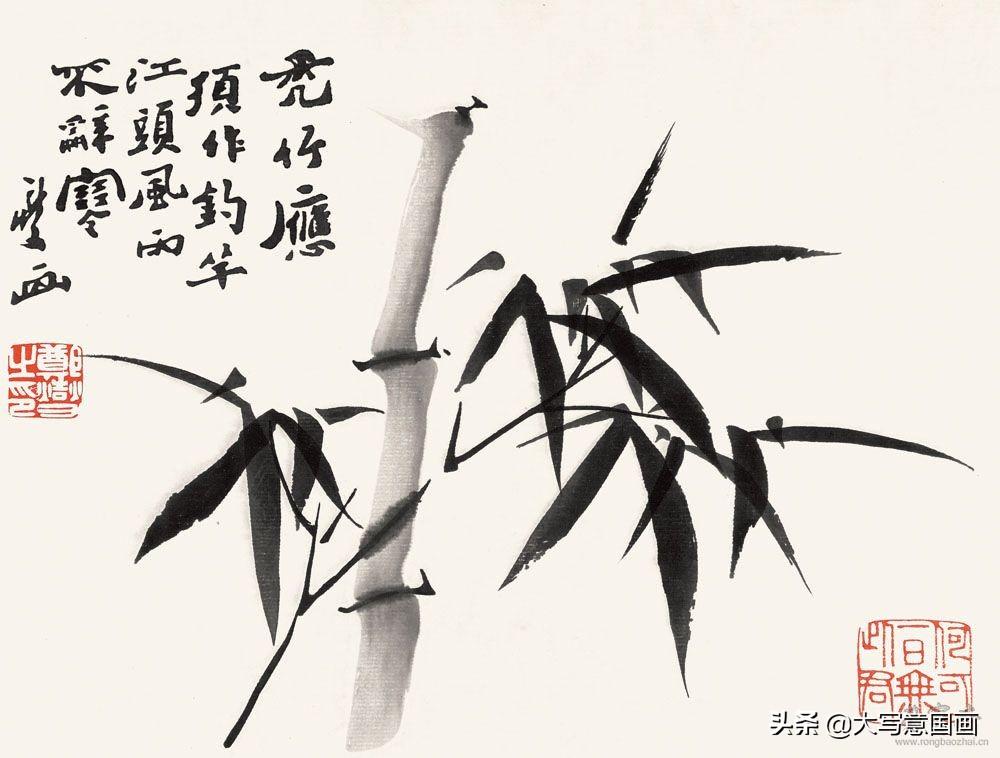 禿竹應
須作釣竿
江頭風雨
不辭寒
燮画
鄭燮
之印
何可
一日無
此君
头条 @大写意国画
www.rongbaozhai.cn